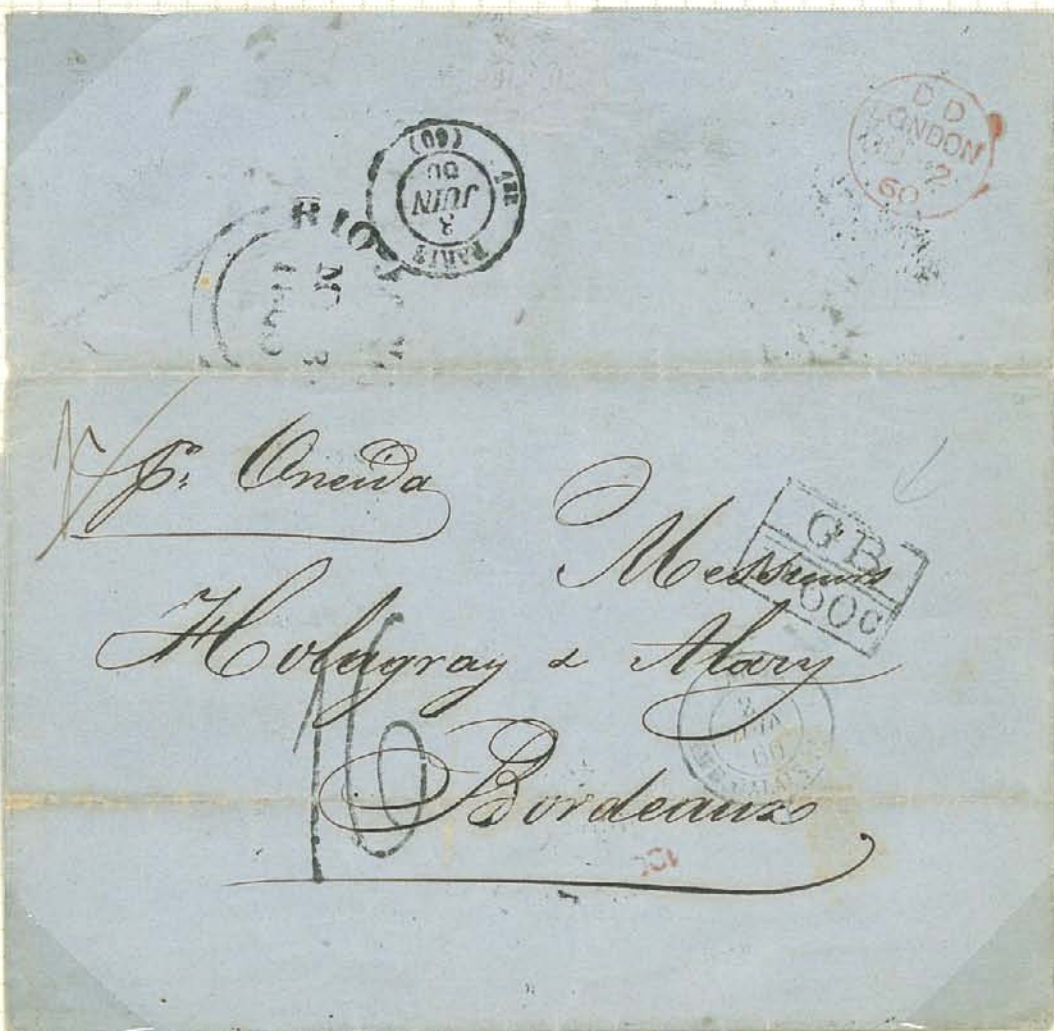 D D
LONDON
2
60
PARIS
3
JUIN
60
(60)
RIO
pr. Oneida
Messieurs
Holagray & Alary
Bordeaux
GB
1F60c
16
2
JUIN
60
CALAIS